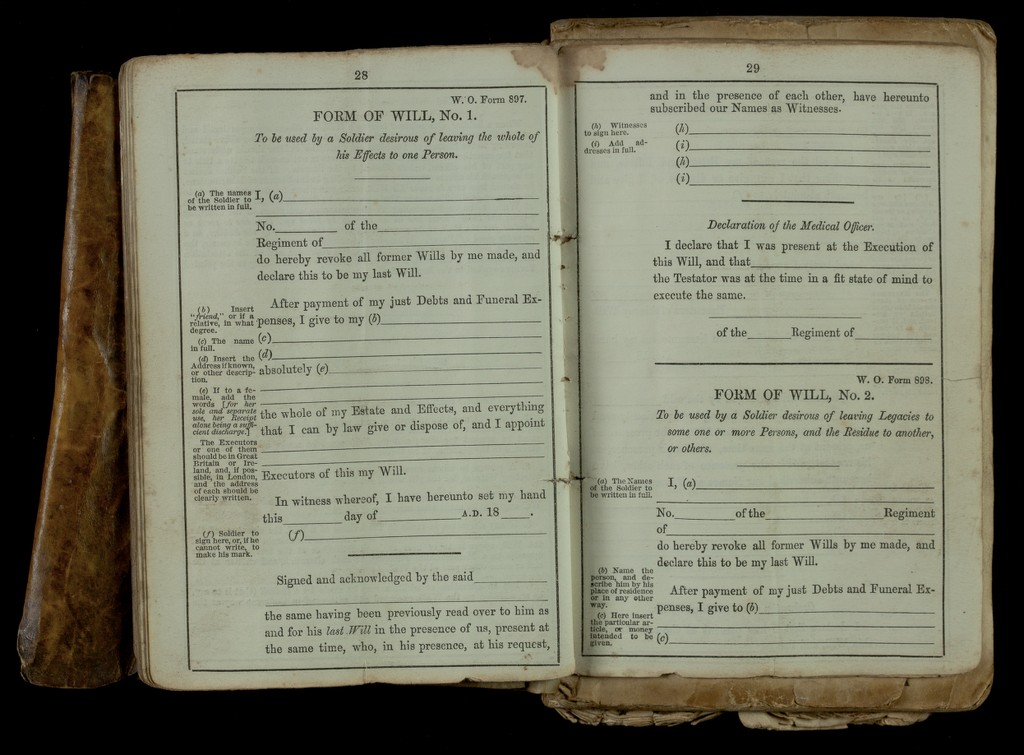 28
W. O. Form 897.
FORM OF WILL, No. 1.
To be used by a Soldier desirous of leaving the whole of
his Effects to one Person.
(a) The names
of the Soldier to
be written in full.
I, (a)
No. of the
Regiment of
do hereby revoke all former Wills by me made, and
declare this to be my last Will.
After payment of my just Debts and Funeral Ex-
(b) Insert
"friend," or if a
relative, in what
degree.
penses, I give to my (b)
(c) The name
in full.
(c)
(d) Insert the
Address if known,
or other descrip-
tion.
(d)
absolutely (e)
(e) If to a fe-
male, add the
words [for her
sole and separate
use, her Receipt
alone being a suffi-
cient discharge.]
the whole of my Estate and Effects, and everything
that I can by law give or dispose of, and I appoint
The Executors
or one of them
should be in Great
Britain or Ire-
land, and, if pos-
sible, in London,
and the address
of each should be
clearly written.
Executors of this my Will.
In witness whereof, I have hereunto set my hand
this day of A.D. 18 .
(f) Soldier to
sign here, or, if he
cannot write, to
make his mark.
(f)
Signed and acknowledged by the said
the same having been previously read over to him as
and for his last Will in the presence of us, present at
the same time, who, in his presence, at his request,
29
and in the presence of each other, have hereunto
subscribed our Names as Witnesses.
(h) Witnesses
to sign here.
(i) Add ad-
dresses in full.
(h)
(i)
(h)
(i)
Declaration of the Medical Officer.
I declare that I was present at the Execution of
this Will, and that
the Testator was at the time in a fit state of mind to
execute the same.
of the Regiment of
W. O. Form 898.
FORM OF WILL, No. 2.
To be used by a Soldier desirous of leaving Legacies to
some one or more Persons, and the Residue to another,
or others.
(a) The Names
of the Soldier to
be written in full.
I, (a)
No. of the Regiment
of
do hereby revoke all former Wills by me made, and
declare this to be my last Will.
(b) Name the
person, and de-
scribe him by his
place of residence
or in any other
way.
After payment of my just Debts and Funeral Ex-
penses, I give to (b)
(c) Here insert
the particular ar-
ticle, or money
intended to be
given.
(c)